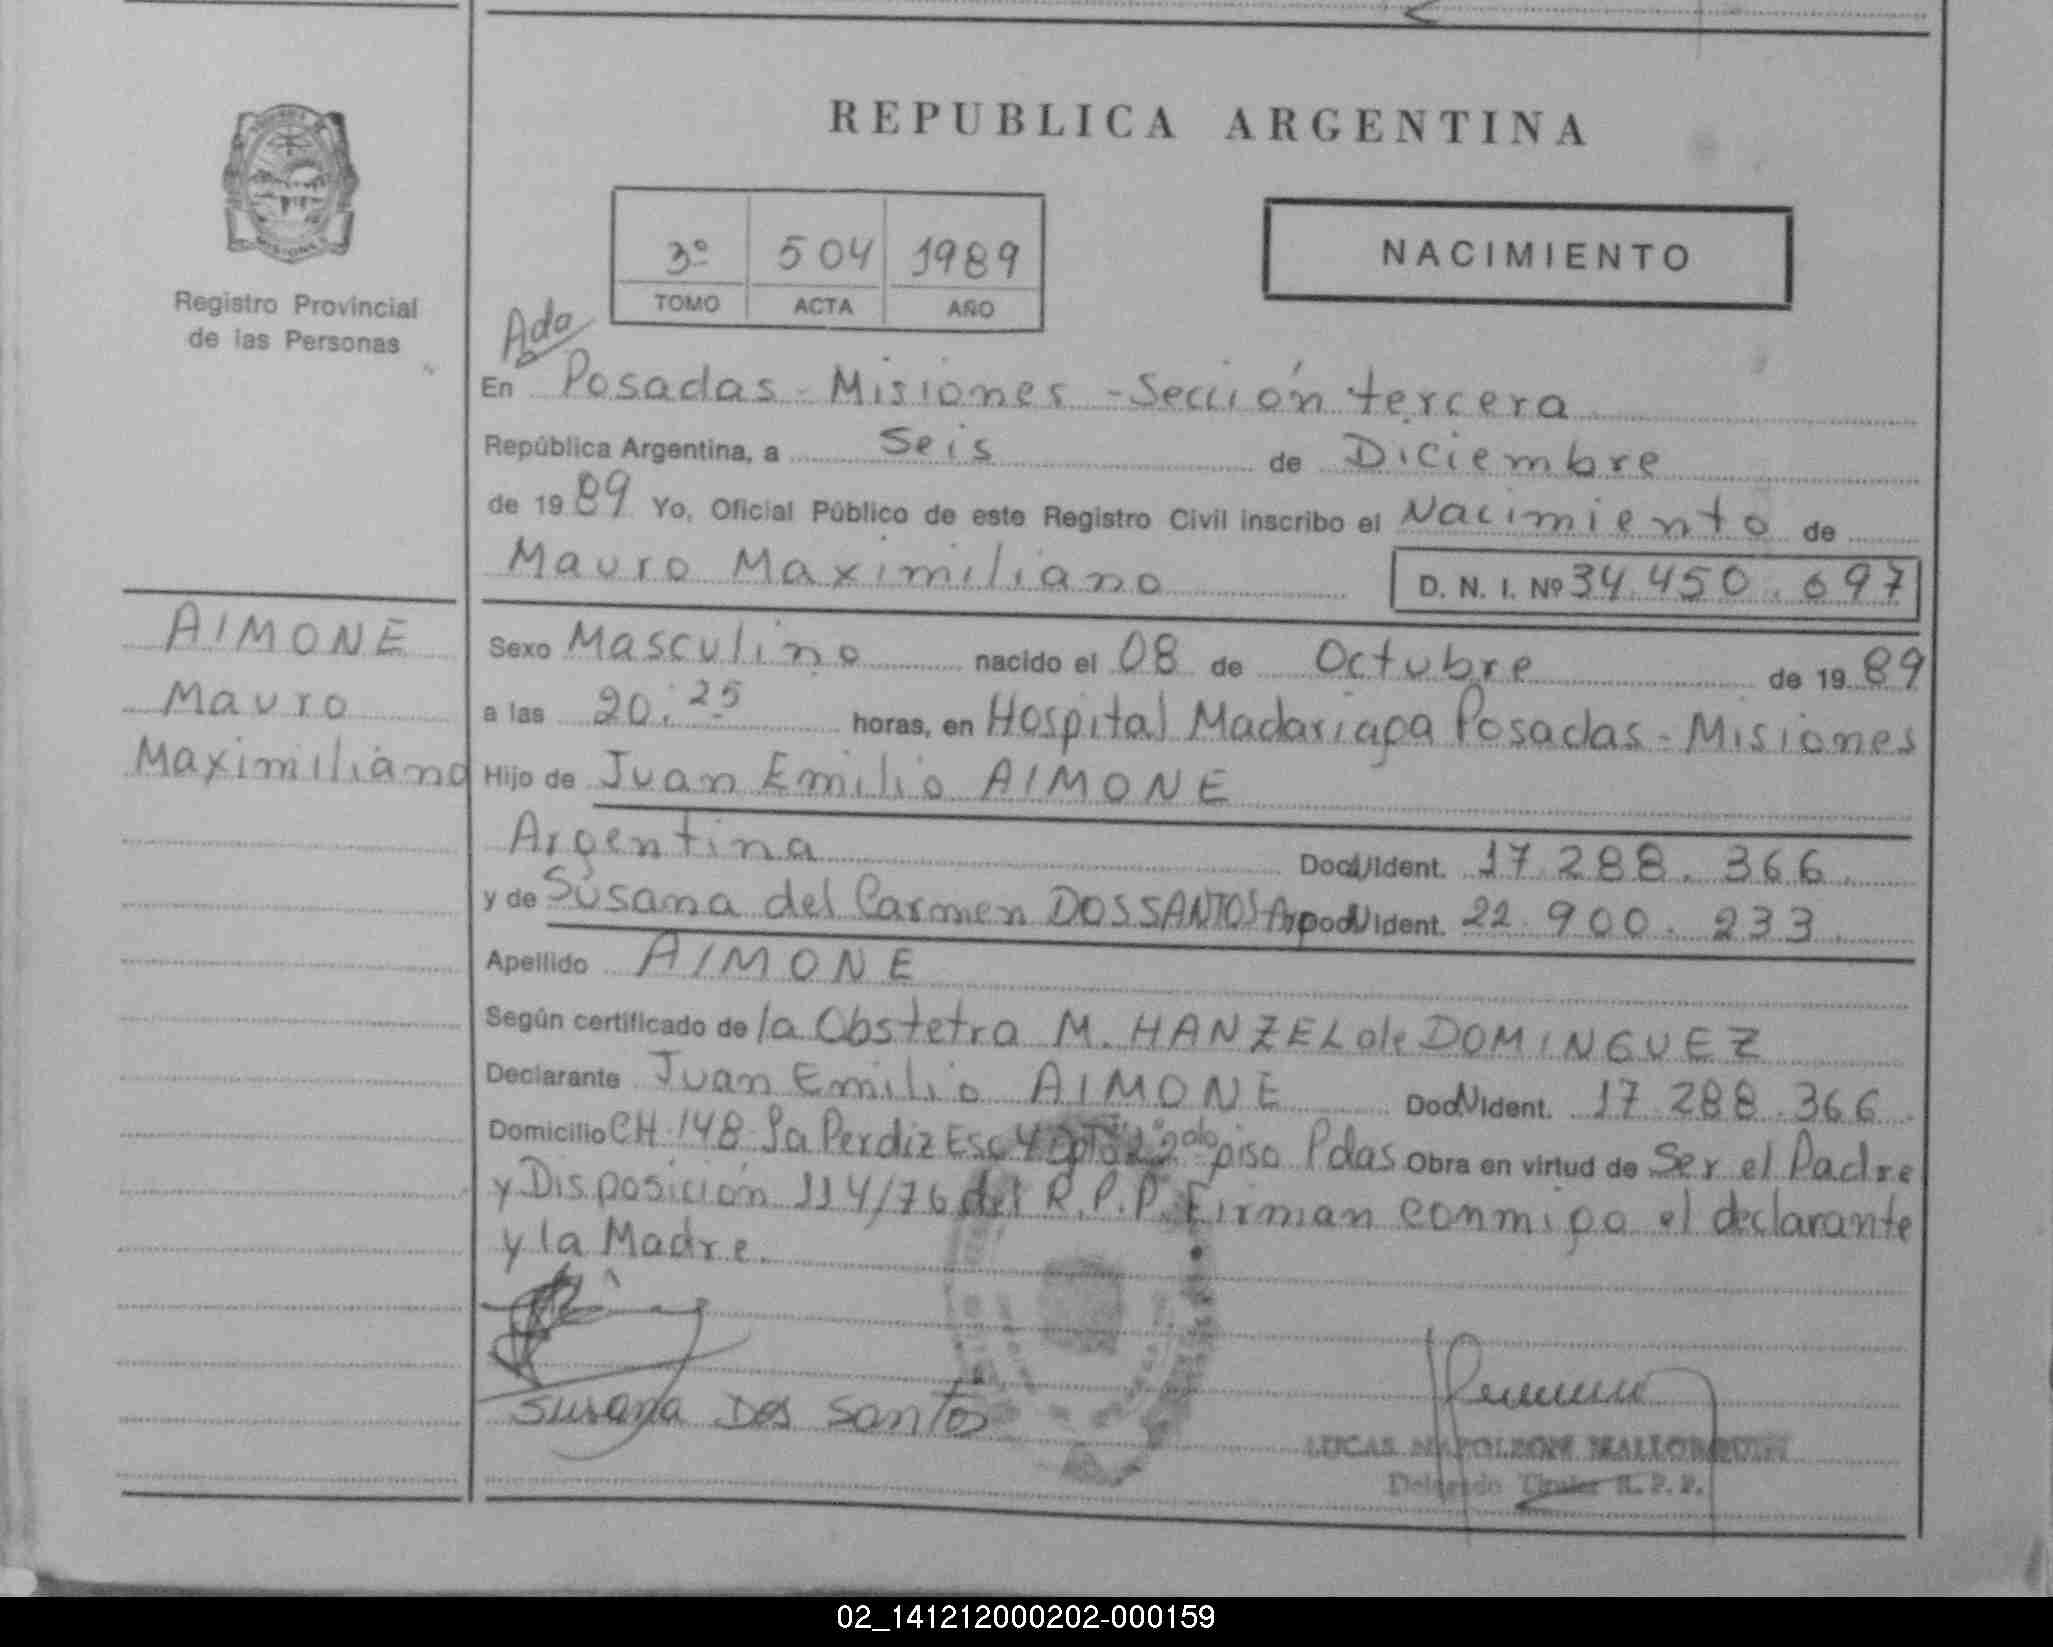 REPUBLICA ARGENTINA
3º 504 1989
TOMO ACTA AÑO
NACIMIENTO
Registro Provincial
de las Personas
Ada
En Posadas - Misiones - Sección tercera
República Argentina, a Seis de Diciembre
de 1989 Yo, Oficial Público de este Registro Civil inscribo el Nacimiento de
Mauro Maximiliano D. N. I. Nº 34.450.697
AIMONE
Mauro
Maximiliano
Sexo Masculino nacido el 08 de Octubre de 1989
a las 20:25 horas, en Hospital Madariaga Posadas - Misiones
Hijo de Juan Emilio AIMONE
Argentina Doc. Ident. 17.288.366
y de Susana del Carmen DOS SANTOS Arg Doc. Ident. 22.900.233
Apellido AIMONE
Según certificado de la Obstetra M. HANZEL de DOMINGUEZ
Declarante Juan Emilio AIMONE Doc. Ident. 17.288.366
Domicilio CH. 148 La Perdiz Esc 4 piso Pdas Obra en virtud de Ser el Padre
y Disposición 114/76 del R.P.P. Firman conmigo el declarante
y la Madre.
Susana Dos Santos
LUCAS NAPOLEON MALLORQUIN
Delegado Titular R. P. P.
02_141212000202-000159